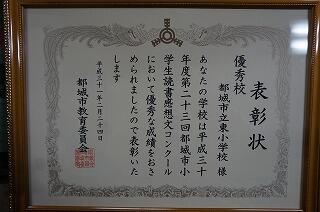 表彰状
優秀校
都城市立東小学校 様
あなたの学校は平成三十
年度第二十三回都城市小
学生読書感想文コンクール
において優秀な成績をおさ
められましたので表彰いた
します
平成三十一年二月二十四日
都城市教育委員会